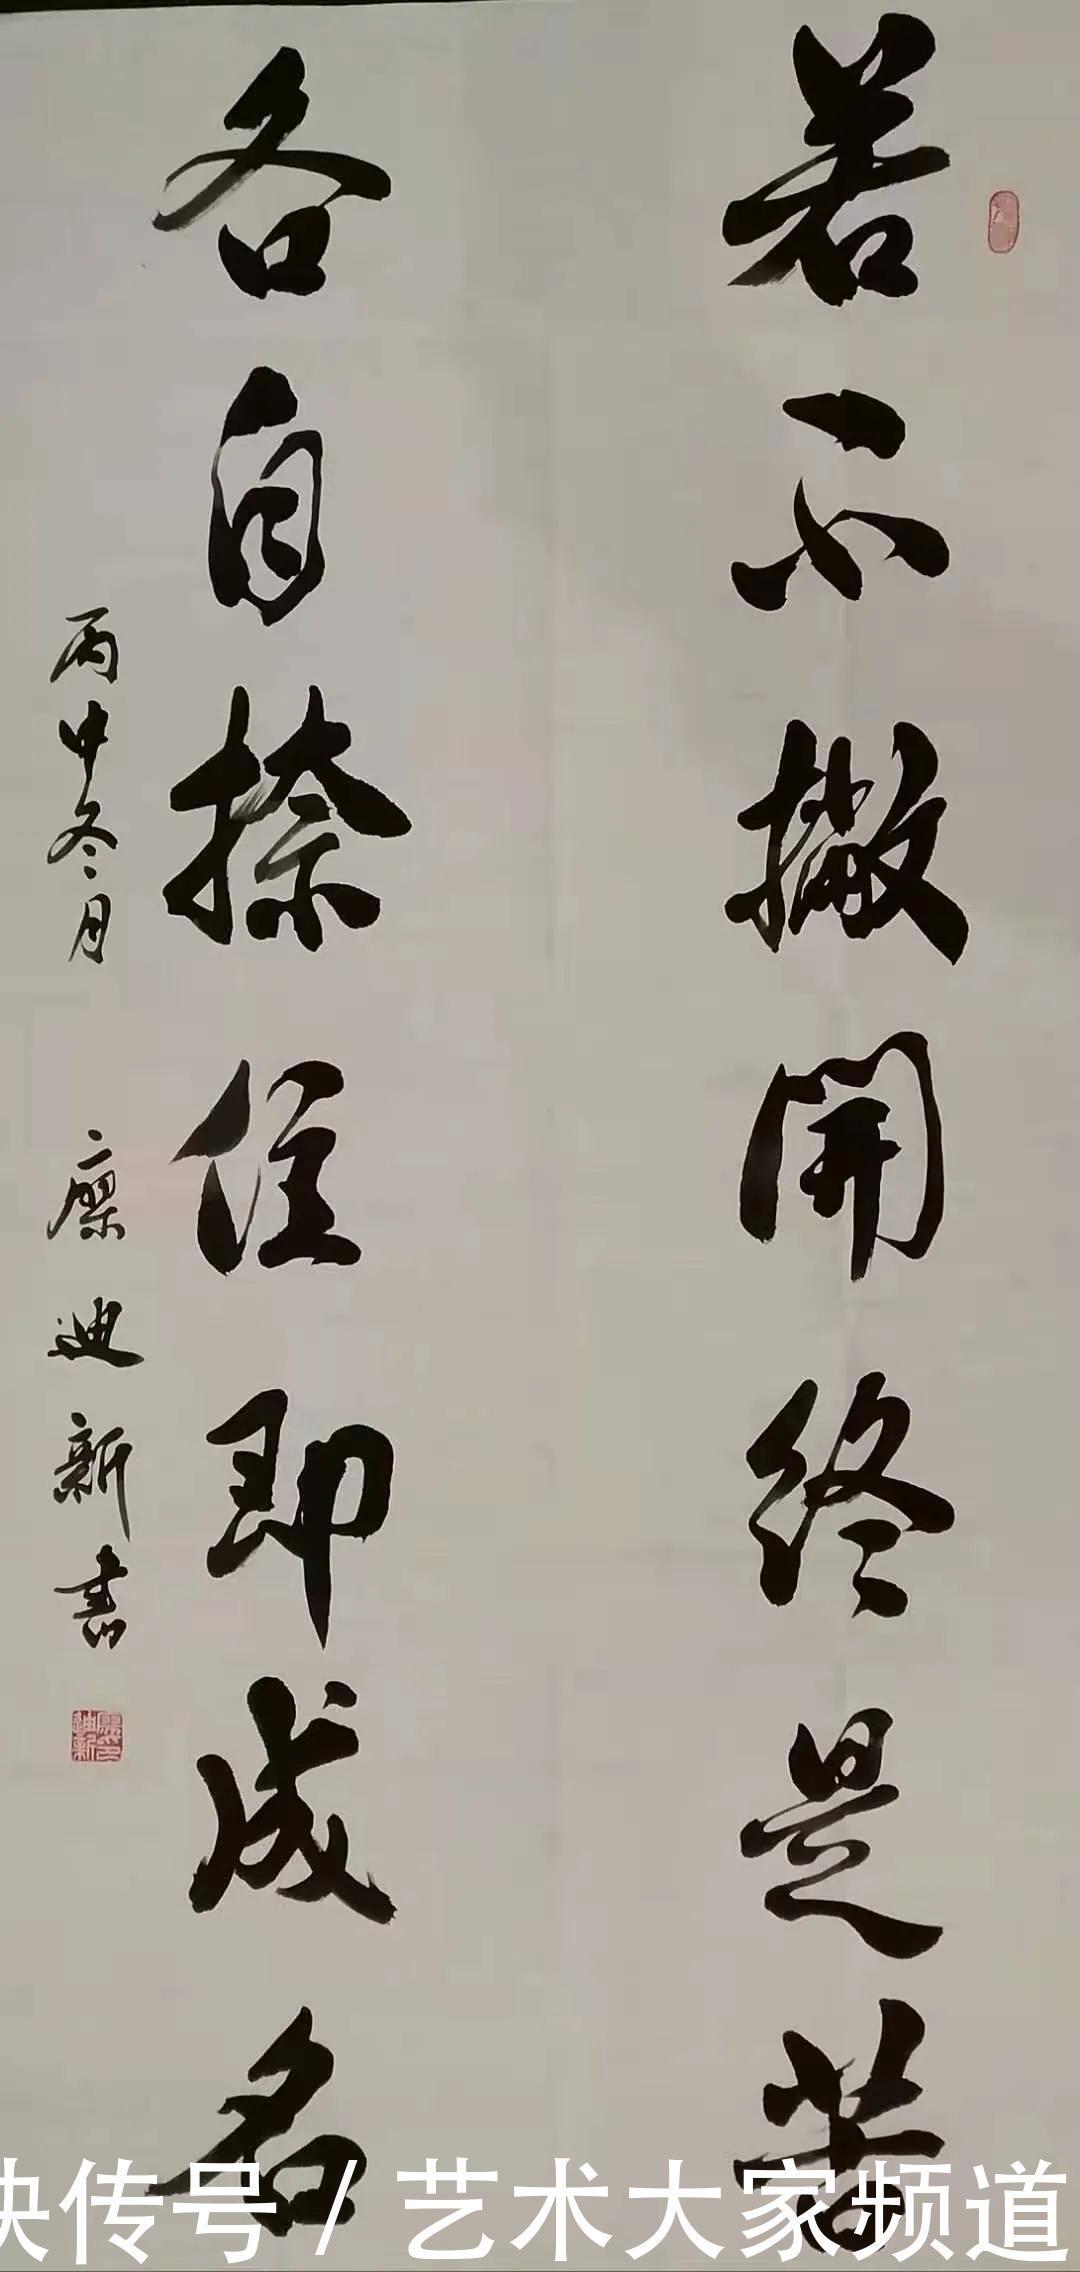 若不撇開终是苦
各自捺住即成名
丙申冬月 廖迪新書
快传号 / 艺术大家频道